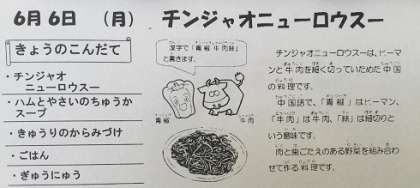 6月6日　(月)　チンジャオニューロウスー
きょうのこんだて
・チンジャオ
ニューロウスー
・ハムとやさいのちゅうか
スープ
・きゅうりのからみづけ
・ごはん
・ぎゅうにゅう
漢字で「青椒牛肉絲」
と書きます。
青椒
牛肉
チンジャオニューロウスーは、ピーマ
ンと牛肉を細く切っていためた中国
の料理です。
中国語で、「青椒」はピーマン、
「牛肉」は牛肉、「絲」は細切りと
いう意味です。
肉と歯ごたえのある野菜を組み合わ
せて作る料理です。